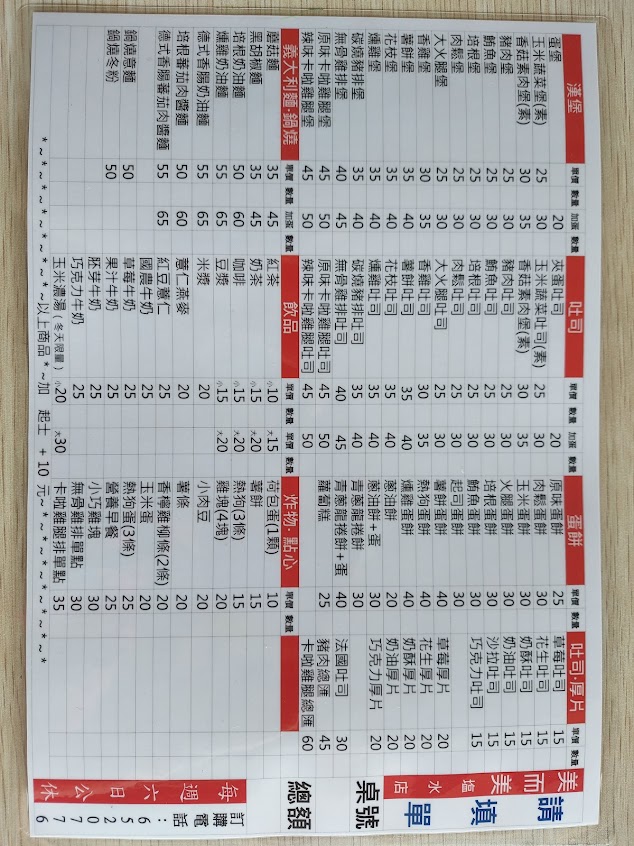 漢堡 單價 數量 加蛋 數量
蛋堡 20
玉米蔬菜堡(素) 25 30
香菇素肉堡(素) 30 35
豬肉堡 25 30
鮪魚堡 25 30
培根堡 25 30
肉鬆堡 25 30
大火腿堡 25 30
香雞堡 30 35
薯餅堡 35 40
花枝堡 35 40
燻雞堡 35 40
碳燒豬排堡 35 40
無骨雞排堡 40 45
原味卡啦雞腿堡 45 50
辣味卡啦雞腿堡 45 50
吐司 單價 數量 加蛋 數量
夾蛋吐司 20
玉米蔬菜吐司(素) 25 30
香菇素肉堡(素) 30 35
豬肉吐司 25 30
鮪魚吐司 25 30
培根吐司 25 30
肉鬆吐司 25 30
大火腿吐司 25 30
香雞吐司 30 35
薯餅吐司 35 40
花枝吐司 35 40
燻雞吐司 35 40
碳燒豬排吐司 35 40
無骨雞排吐司 40 45
原味卡啦雞腿吐司 45 50
辣味卡啦雞腿吐司 45 50
蛋餅 單價 數量
原味蛋餅 25
肉鬆蛋餅 30
玉米蛋餅 30
火腿蛋餅 30
培根蛋餅 30
鮪魚蛋餅 30
起司蛋餅 30
薯餅蛋餅 40
熱狗蛋餅 40
燻雞蛋餅 40
蔥油餅 20
蔥油餅+蛋 30
青蔥龍捲餅 30
青蔥龍捲餅+蛋 40
蘿蔔糕 25
吐司·厚片 單價 數量
草莓吐司 15
花生吐司 15
奶酥吐司 15
奶油吐司 15
沙拉吐司 15
巧克力吐司 15
草莓厚片 20
花生厚片 20
奶酥厚片 20
奶油厚片 20
巧克力厚片 20
法國吐司 30
豬肉總匯 45
卡啦雞腿總匯 60
美而美
塩水店
請填單
桌號
總額
義大利麵·鍋燒 單價 數量 加蛋 數量
蘑菇麵 35 45
黑胡椒麵 35 45
培根奶油麵 50 60
燻雞奶油麵 55 65
德式香腸奶油麵 55 65
培根蕃茄肉醬麵 50 60
德式香腸蕃茄肉醬麵 55 65
鍋燒意麵 50
鍋燒冬粉 50
飲品 單價 數量 單價 數量
紅茶 小10 大15
奶茶 小15 大20
咖啡 小15 大20
豆漿 小15 大20
米漿 20
薏仁燕麥 20
紅豆薏仁 25
國農牛奶 25
草莓牛奶 25
果汁牛奶 25
胚芽牛奶 25
巧克力牛奶 25
玉米濃湯(冬天限量) 小20 大30
炸物·點心 單價 數量
荷包蛋(1顆) 10
薯餅 15
熱狗(3條) 15
雞塊(4塊) 20
小肉豆 20
薯條 20
香檸雞柳條(2條) 20
玉米蛋 20
熱狗蛋(3條) 25
營養早餐 25
小巧雞塊 30
無骨雞排單點 30
卡啦雞腿排單點 35
每週六日公休
訂購電話:6520776
*~*~*~*~*~*~以上商品*~*~加 起士 +10 元~*~*~*~*~*~*~*